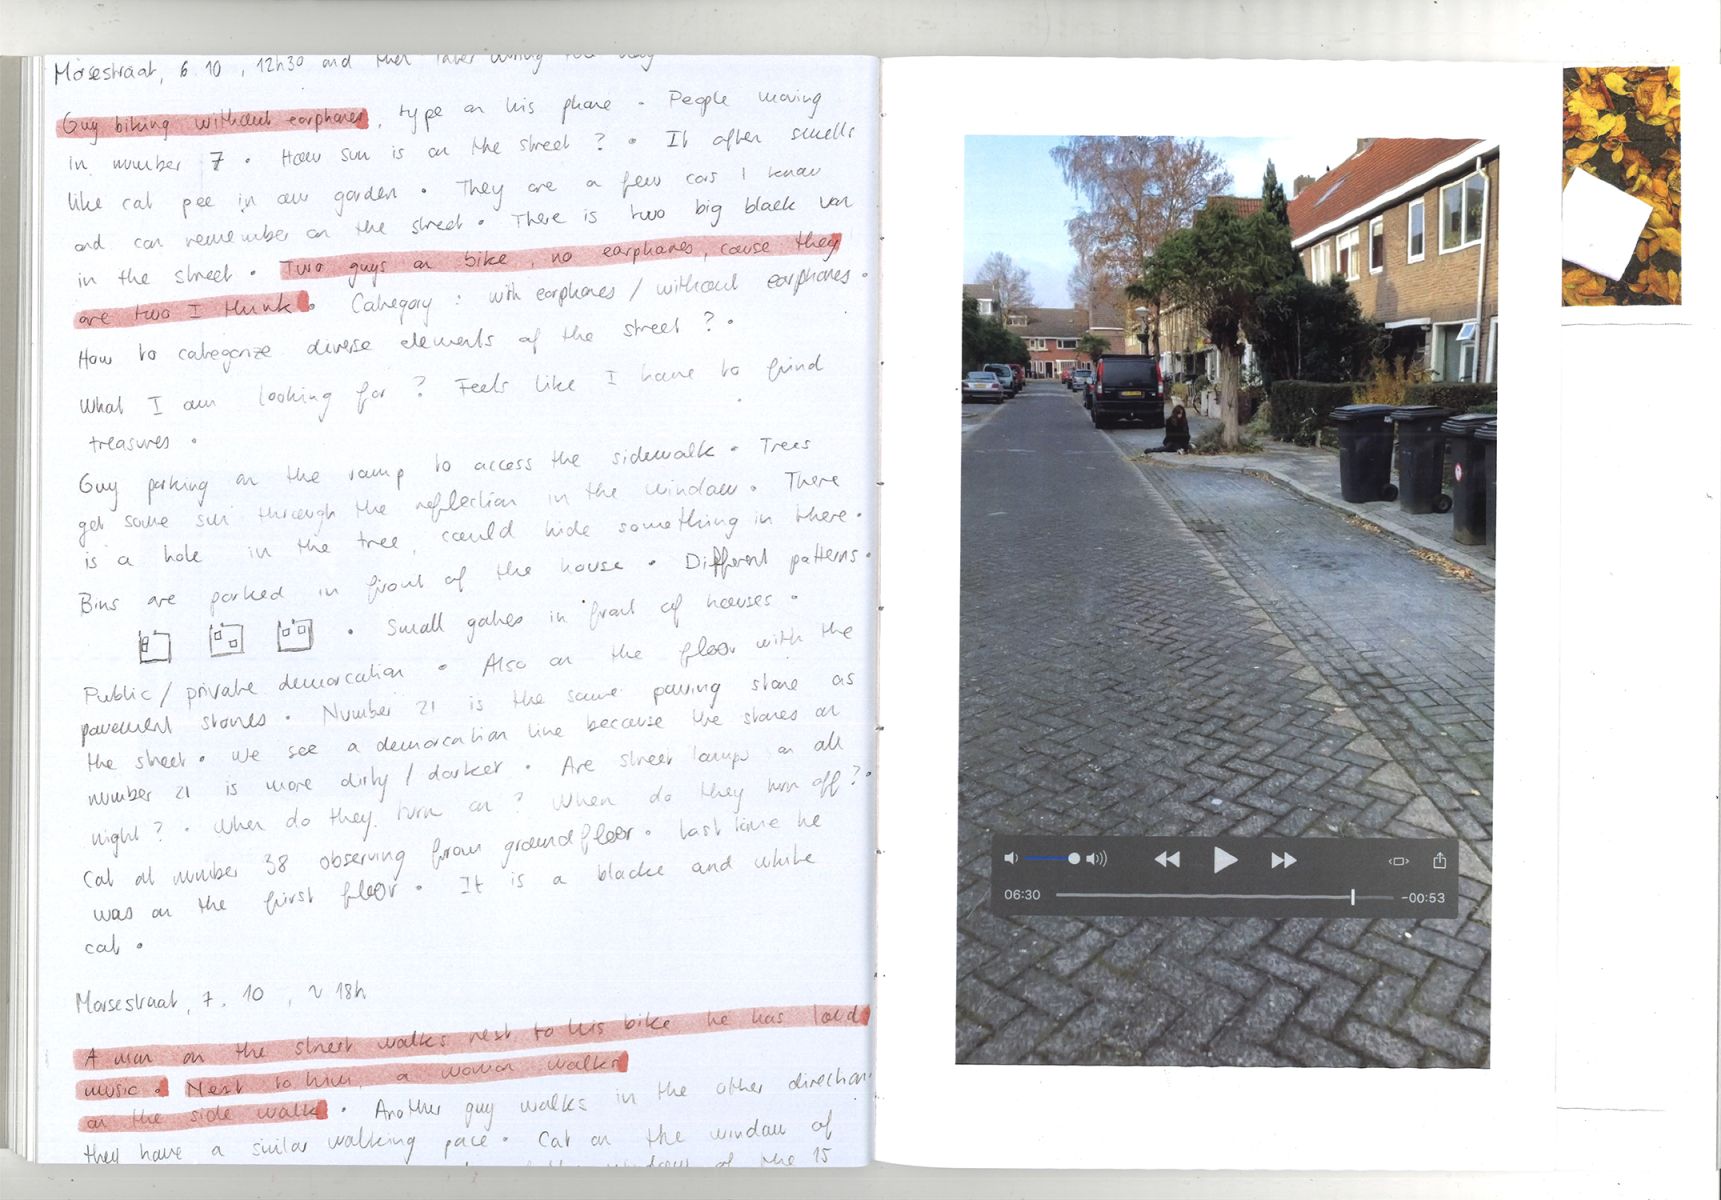 Morsestraat, 6.10, 12h30 and then later during the day
Guy biking without earphones, type on his phone. People moving
in number 7. How sun is on the street?. It often smells
like cat pee in our garden. They are a few cars I know
and can remember on the street. There is two big black van
in the street. Two guys on bike, no earphones, cause they
are two I think. Category: with earphones / without earphones.
How to categorize diverse elements of the street?.
What I am looking for? Feels like I have to find
treasures.
Guy parking on the ramp to access the sidewalk. Trees
get some sun through the reflection in the window. There
is a hole in the tree, could hide something in there.
Bins are parked in front of the house. Different patterns.
. Small gates in front of houses.
Public / private demarcation. Also on the floor with the
pavement stones. Number 21 is the same paving stone as
the street. We see a demarcation line because the stones on
number 21 is more dirty / darker. Are street lamps on all
night?. When do they turn on? When do they turn off?.
Cat at number 38 observing from groundfloor. Last time he
was on the first floor. It is a blacke and white
cat.
Morsestraat, 7.10, ~ 18h
A man on the street walks next to his bike he has loud
music. Next to him a woman walks
on the side walk. Another guy walks in the other direction.
they have a similar walking pace. Cat on the window of
window of the 15
06:30
-00:53